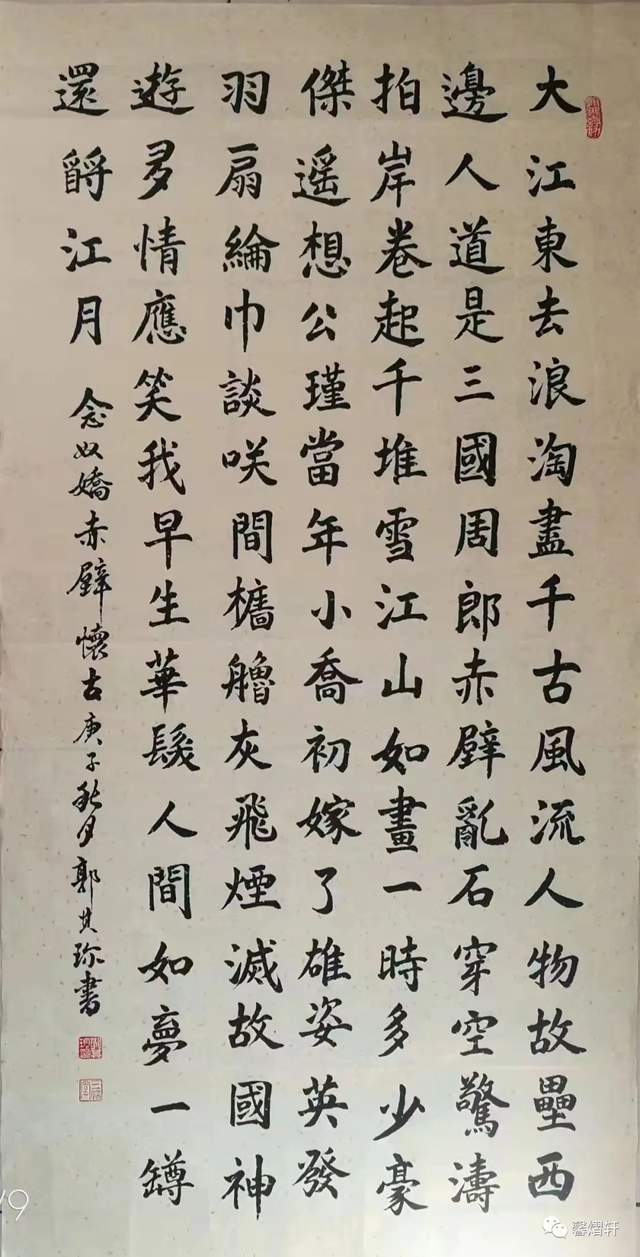 大江東去浪淘盡千古風流人物故壘西
邊人道是三國周郎赤壁亂石穿空驚濤
拍岸卷起千堆雪江山如畫一時多少豪
傑遥想公瑾當年小喬初嫁了雄姿英發
羽扇綸巾談咲間檣艣灰飛煙滅故國神
遊多情應笑我早生華髮人間如夢一罇
還酹江月
念奴嬌赤壁懷古庚子秋月郭其珎書
馨熠轩
/9